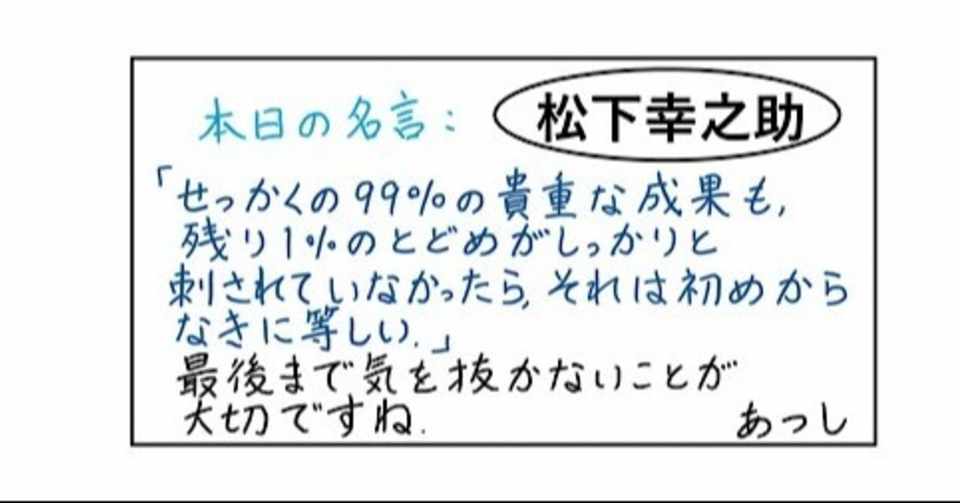 本日の名言: 松下幸之助
「せっかくの99%の貴重な成果も,
残り1%のとどめがしっかりと
刺されていなかったら,それは初めから
なきに等しい.」
最後まで気を抜かないことが
大切ですね.
あっし